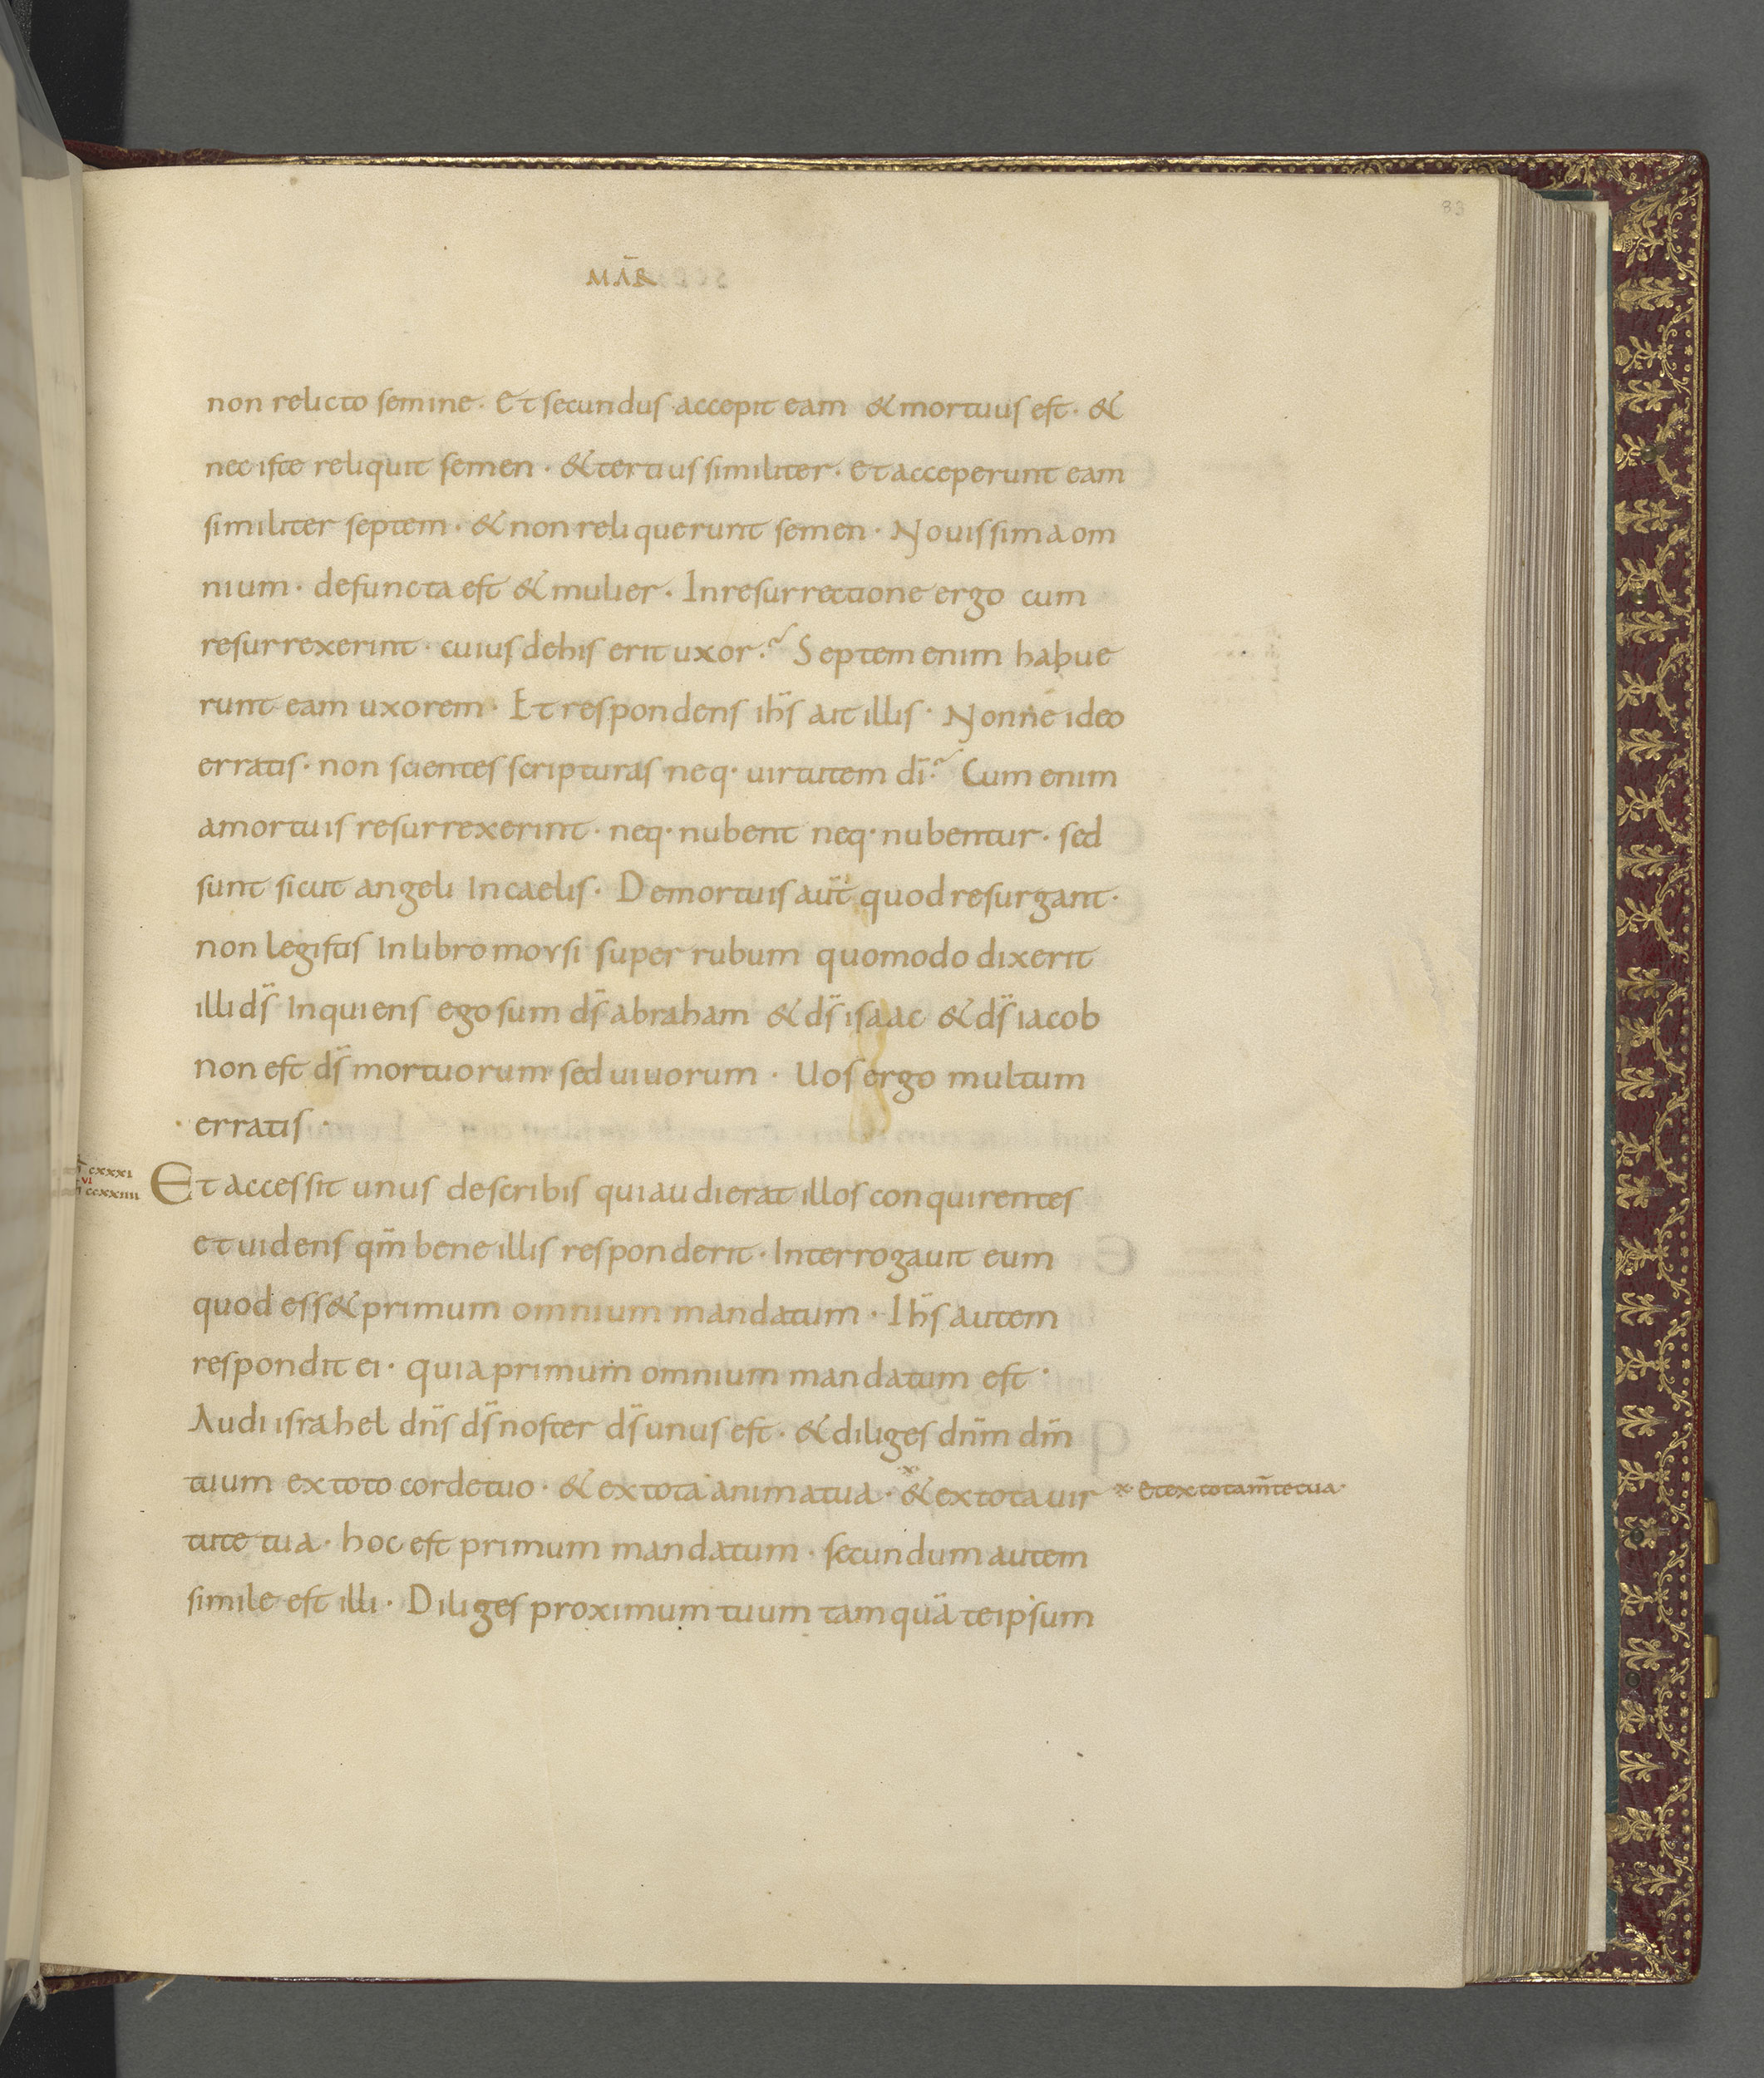 83
MAR̄
non relicto semine · Et secundus accepit eam & mortuus est · &
nec iste reliquit semen · & tertius similiter · et acceperunt eam
similiter septem · & non reliquerunt semen · Nouissima om
nium · defuncta est & mulier · In resurrectione ergo cum
resurrexerint · cuius de his erit uxor? Septem enim habue
runt eam uxorem · Et respondens ih̄s ait illis · Nonne ideo
erratis · non scientes scripturas neq· uirtutem dī? Cum enim
a mortuis resurrexerint · neq· nubent neq· nubentur · sed
sunt sicut angeli in caelis · De mortuis aūt quod resurgant ·
non legistis in libro moysi super rubum quomodo dixerit
illi ds̄ inquiens ego sum ds̄ abraham & ds̄ isaac & ds̄ iacob
non est ds̄ mortuorum sed uiuorum · Uos ergo multum
erratis ·
cxxxi
vi
ccxxiiii
Et accessit unus de scribis qui audierat illos conquirentes
et uidens qm̄ bene illis responderit · Interrogauit eum
quod ess& primum omnium mandatum · Ih̄s autem
respondit ei · quia primum omnium mandatum est ·
Audi israhel dn̄s ds̄ noster ds̄ unus est · & diliges dnm̄ dm̄
tuum ex toto corde tuo · & ex tota anima tua · & ex tota uir
et ex tota m̄te tua ·
tute tua · hoc est primum mandatum · secundum autem
simile est illi · Diliges proximum tuum tamquā te ipsum